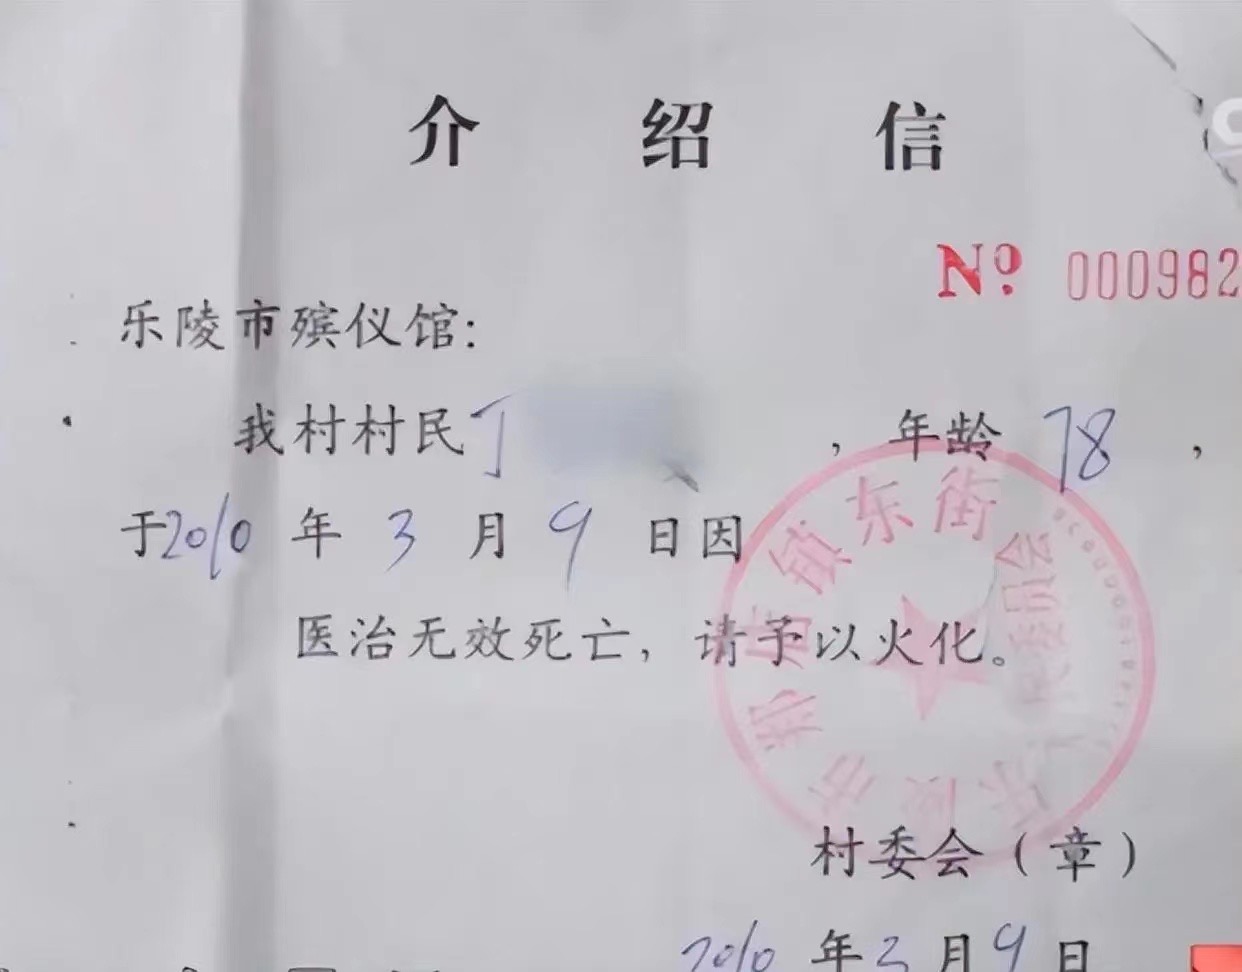 介绍信
Nº 000982
乐陵市殡仪馆:
我村村民丁 ,年龄 78 ,
于2010 年 3 月 9 日因
医治无效死亡,请予以火化。
乐陵市郑店镇东街 民委员会
村委会(章)
2010 年 3 月 9 日